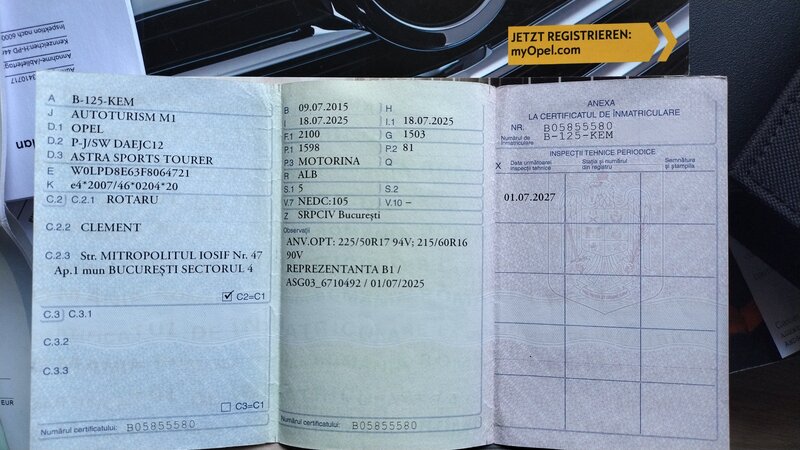 JETZT REGISTRIEREN:
myOpel.com
Inspektion nach 6000
Kennzeichen/H-PD 44
Annahme/Ablieferung
3410717
A B-125-KEM
J AUTOTURISM M1
D.1 OPEL
D.2 P-J/SW DAEJC12
D.3 ASTRA SPORTS TOURER
E W0LPD8E63F8064721
K e4*2007/46*0204*20
C.2 C.2.1 ROTARU
C.2.2 CLEMENT
C.2.3 Str. MITROPOLITUL IOSIF Nr. 47
Ap.1 mun BUCUREŞTI SECTORUL 4
C2=C1
C.3 C.3.1
C.3.2
C.3.3
C3=C1
Numărul certificatului: B05855580
EUR
B 09.07.2015 H
I 18.07.2025 I.1 18.07.2025
F.1 2100 G 1503
P.1 1598 P.2 81
P.3 MOTORINA Q
R ALB
S.1 5 S.2
V.7 NEDC:105 V.10 –
Z SRPCIV Bucureşti
Observaţii
ANV.OPT: 225/50R17 94V; 215/60R16
90V
REPREZENTANTA B1 /
ASG03_6710492 / 01/07/2025
Numărul certificatului: B05855580
ANEXA
LA CERTIFICATUL DE ÎNMATRICULARE
NR. B05855580
Numărul de
înmatriculare B-125-KEM
INSPECŢII TEHNICE PERIODICE
X Data următoarei
inspecţii tehnice
Staţia şi numărul
din registru
Semnătura
şi ştampila
01.07.2027